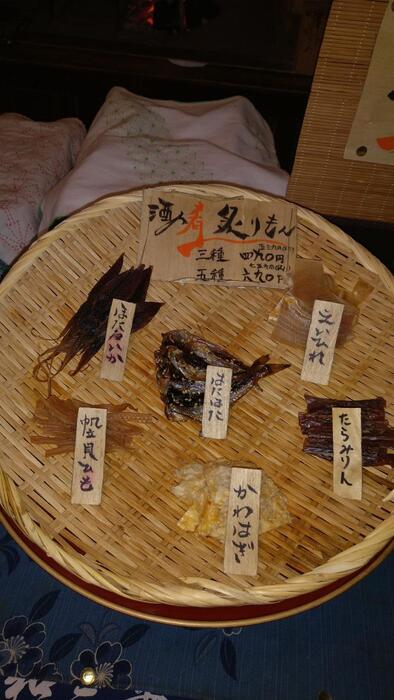 酒の肴 炙りもん
三種 四九〇円
五種 六九〇円
ほたるいか
はたはた
えいひれ
帆立貝ひも
かわはぎ
たらみりん